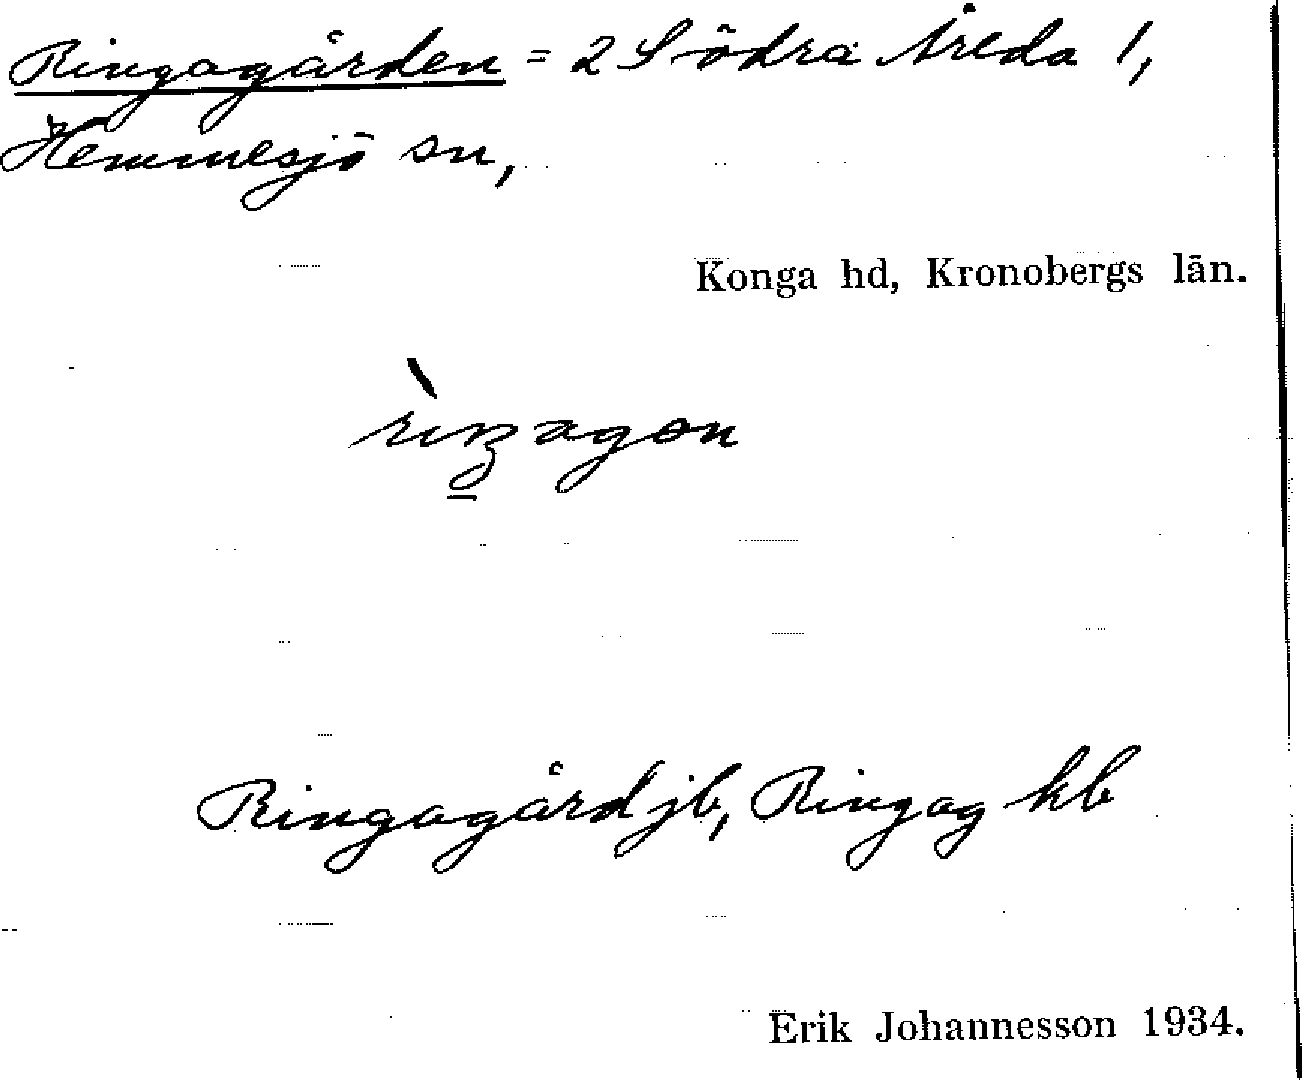 Ringagården = 2 Södra Åreda 1,
Hemmesjö sn,
Konga hd, Kronobergs län.
Ringagård jb, Ringag kb
Erik Johannesson 1934.